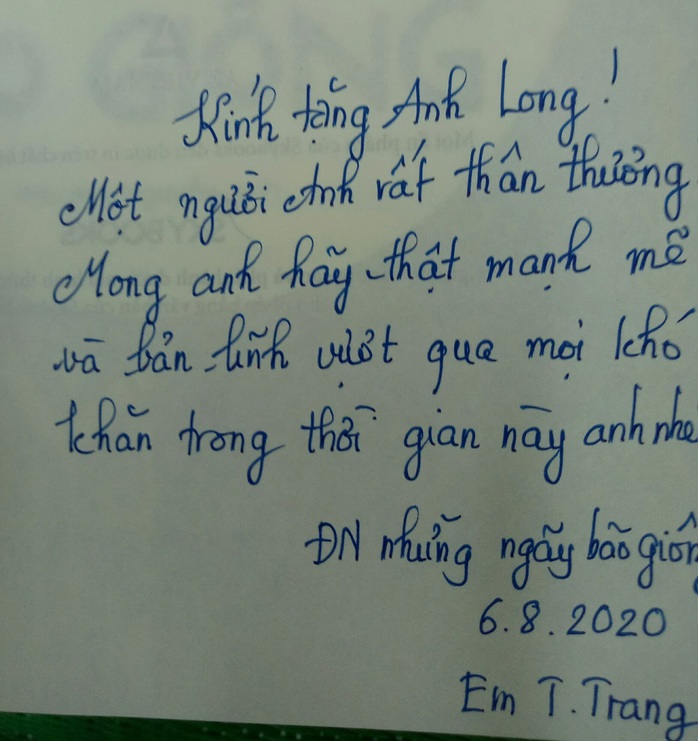 Kính tặng Anh Long!
Một người Anh rất thân thương
Mong anh hãy thật mạnh mẽ
và bản lĩnh vượt qua mọi khó
khăn trong thời gian này anh nhe
ĐN những ngày bão giôn
6.8.2020
Em T. Trang